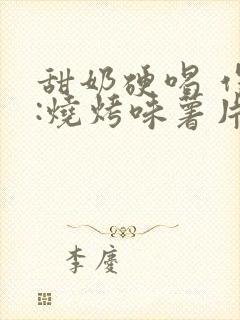 甜奶硬唱
:燒烤味薯片
李慶